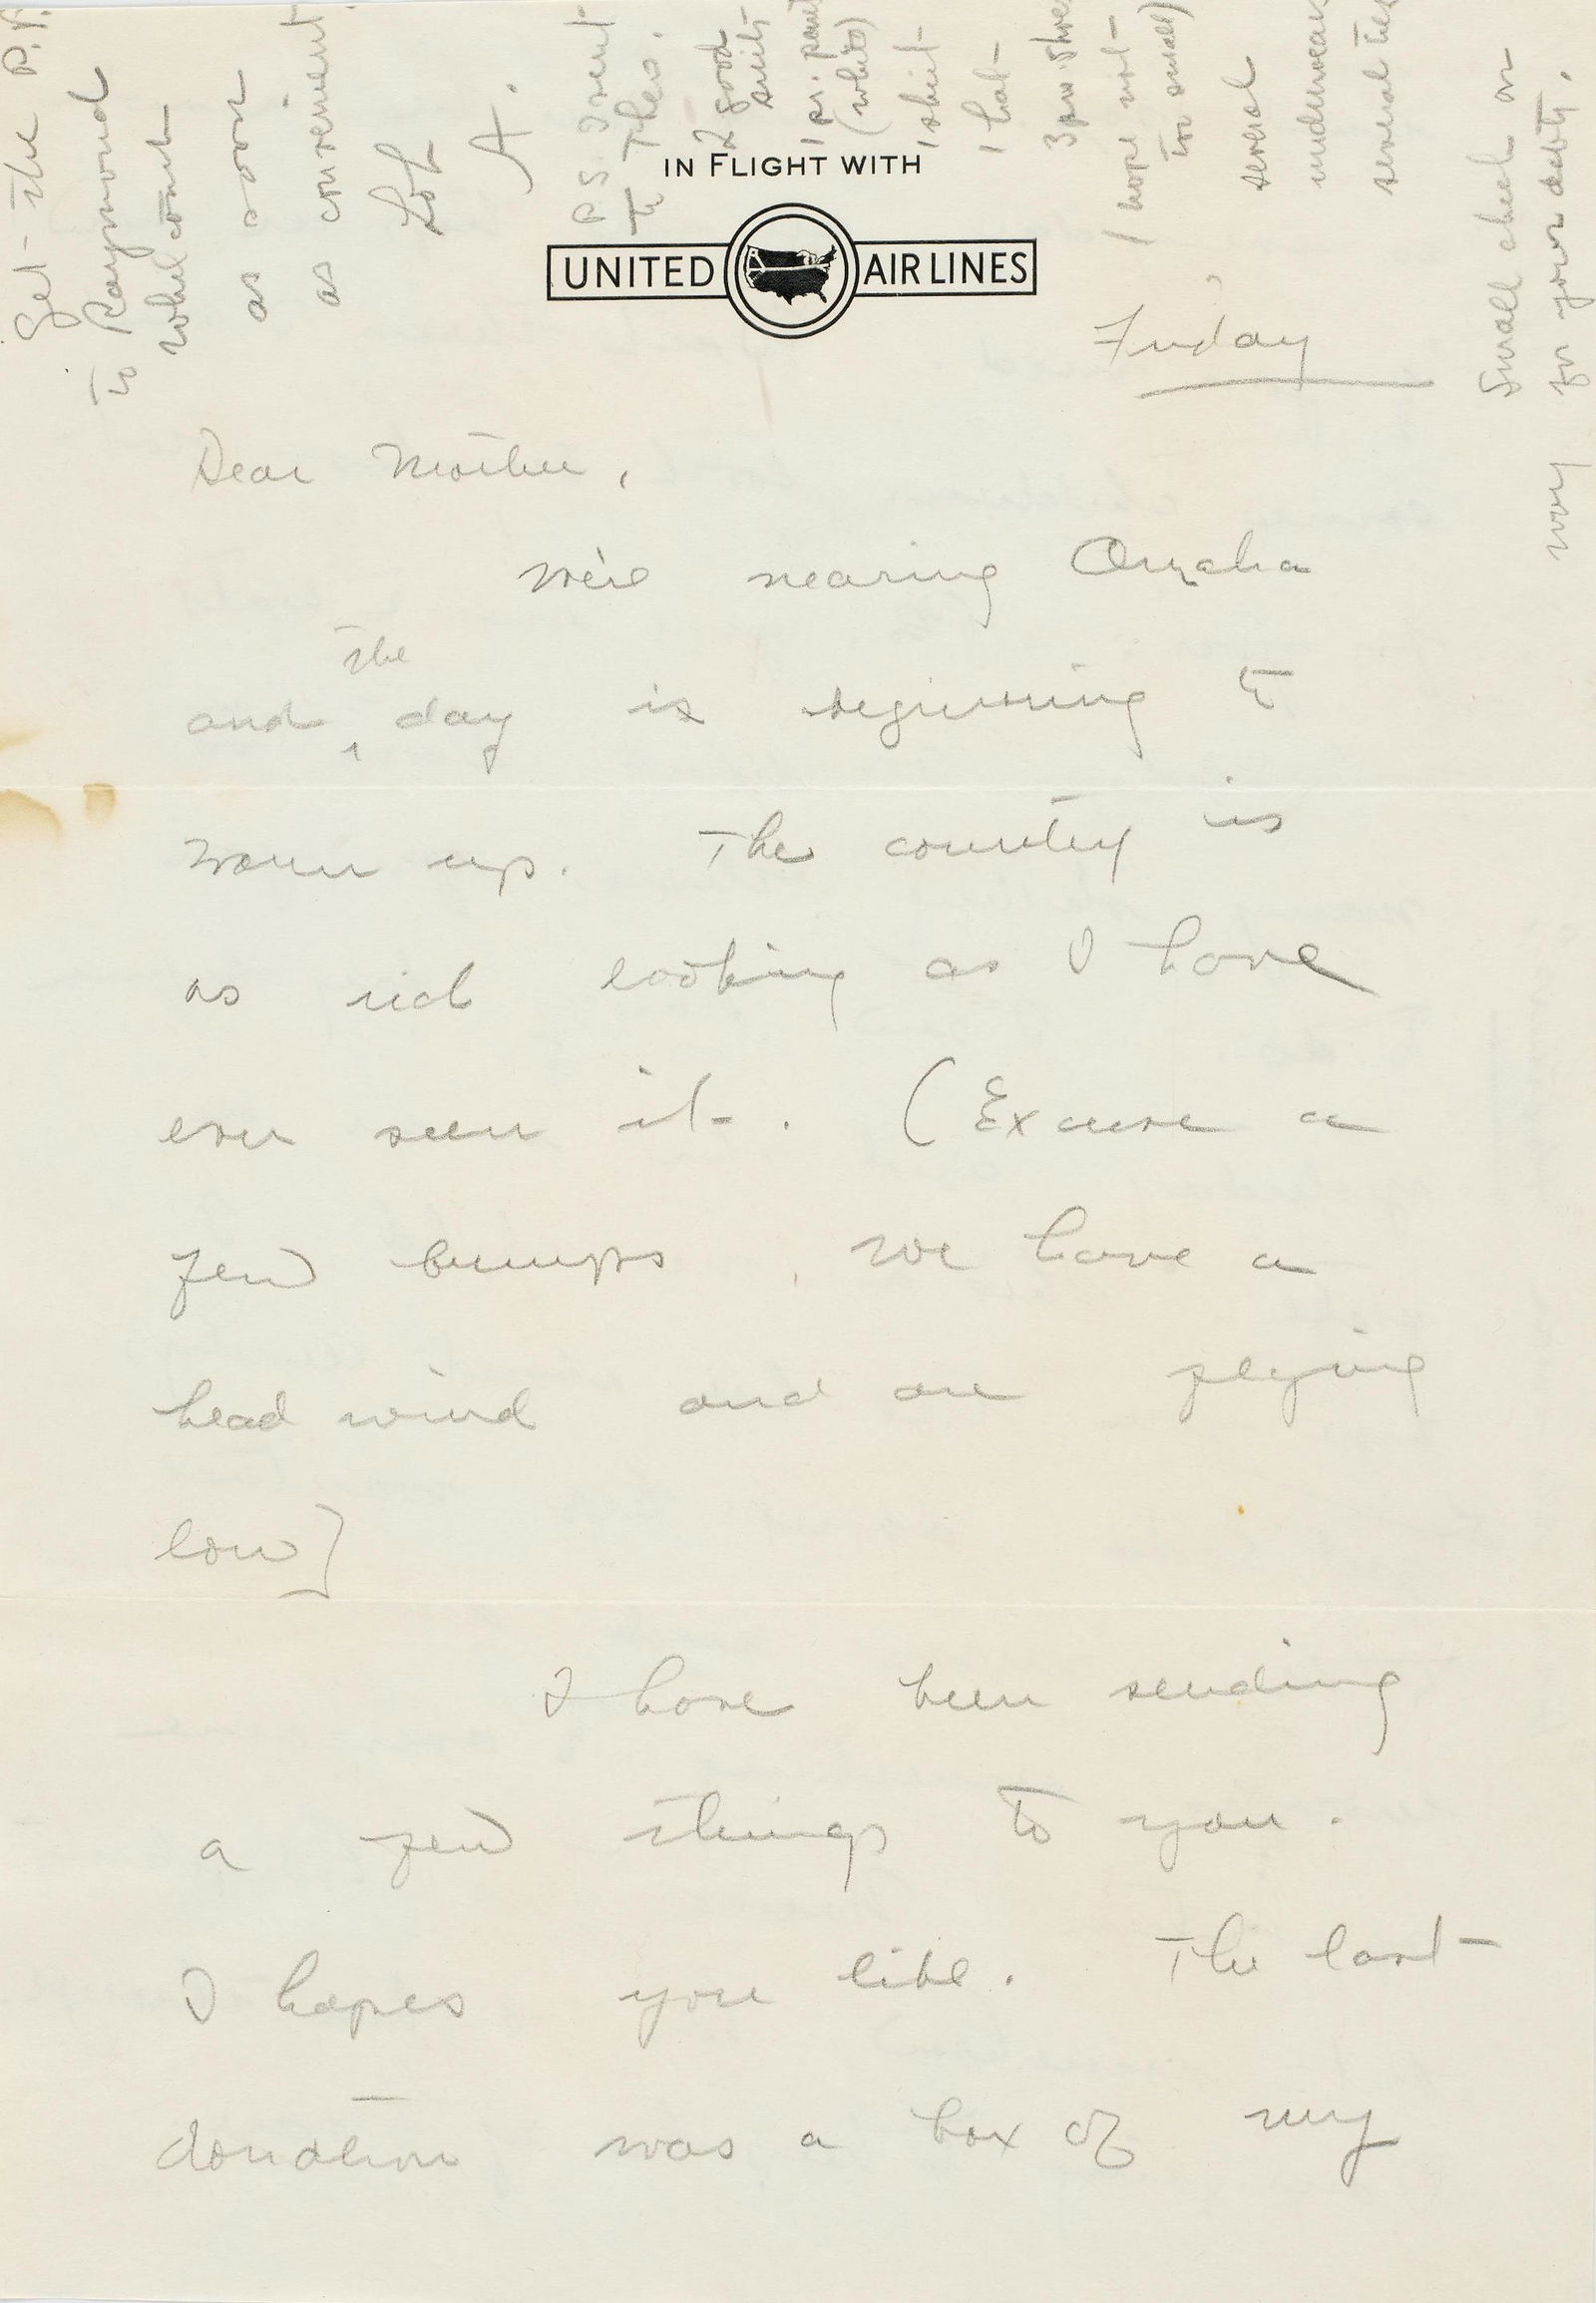 IN FLIGHT WITH
UNITED AIR LINES
Friday
Dear Mother,
We're nearing Omaha
and the day is beginning to
warm up. The country is
as rich looking as I have
ever seen it. (Excuse a
few bumps, we have a
head wind and are flying
low)
I have been sending
a few things to you.
I hopes you like. The last
donation was a box of my
Get the P.A.
to Raymond
Welcome
as soon
as convenient.
Lol
A.
P.S. I sent
to Theo.
2 good
suits
1 pr. pant
(white)
1 shirt
1 hat
3 prs shoe
(hope not
too small)
several
underwear
several ties
Small check on
for your activity.
way